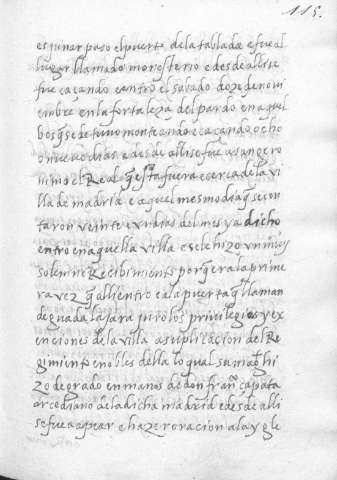 115.
es junar paso el puerto de la tablada e fue al
lugar llamado monesterio e desde alli se
fue caçando e entro el sabado doze de novi
embre en la fortaleza del pardo en aquel
bosq̃ se detuvo monteando e caçando ocho
o nueve dias e desde alli se fue a san gero
nimo el Real q̃ esta fuera e cerca de la vi
lla de madrid e a quel mesmo dia q̃ se con
taron veinte e vn dias del mes ya dicho
entro en aquella villa e se le hizo vn muy
solemne Recibimiento porq̃ era la prime
ra vez q̃ alli entro e a la puerta q̃ llaman
de guadalajara juro los privilegios y ex
enciones de la villa a suplicacion del Re
gimiento e nobles della lo qual su mag̃ hi
zo de grado en manos de don fran.co çapata
arcediano de la dicha madrid e desde alli
se fue a apear e hazer oracion a la ygle